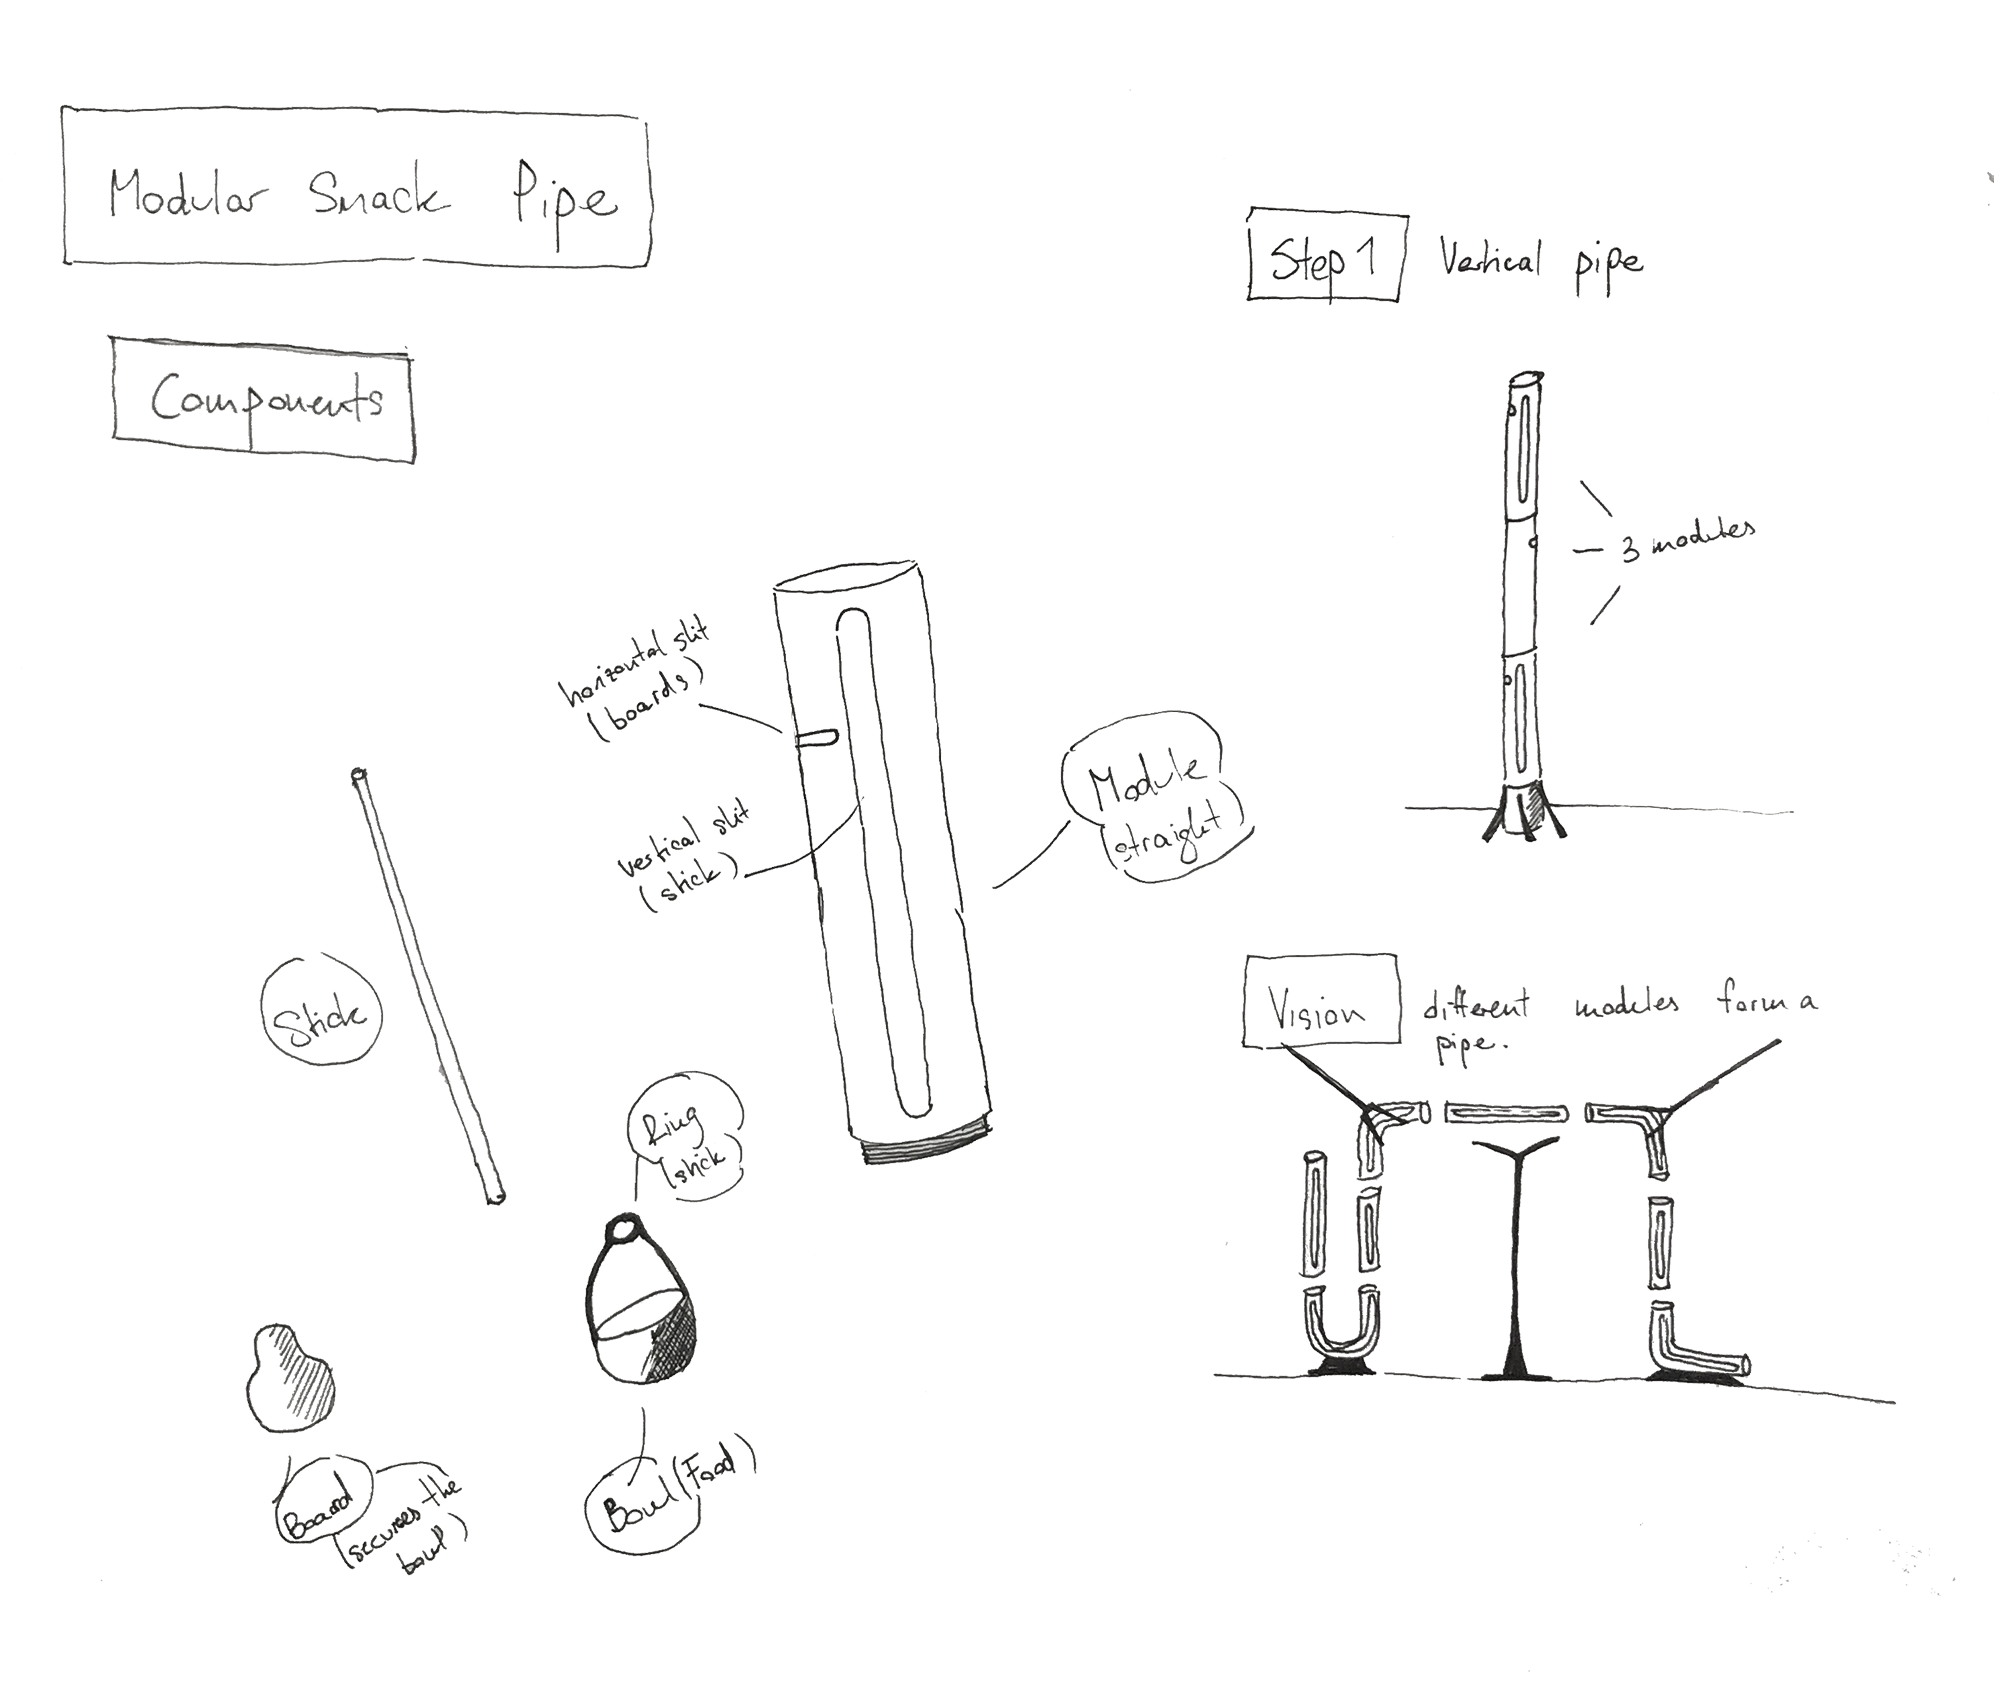 Modular Snack Pipe
Components
horizontal slit
(boards)
vertical slit
(stick)
Module
(straight)
Stick
Ring
(stick
Board
(secures the
bowl)
Bowl (Food)
Step 1 Vertical pipe
3 modules
Vision different modules form a
pipe.